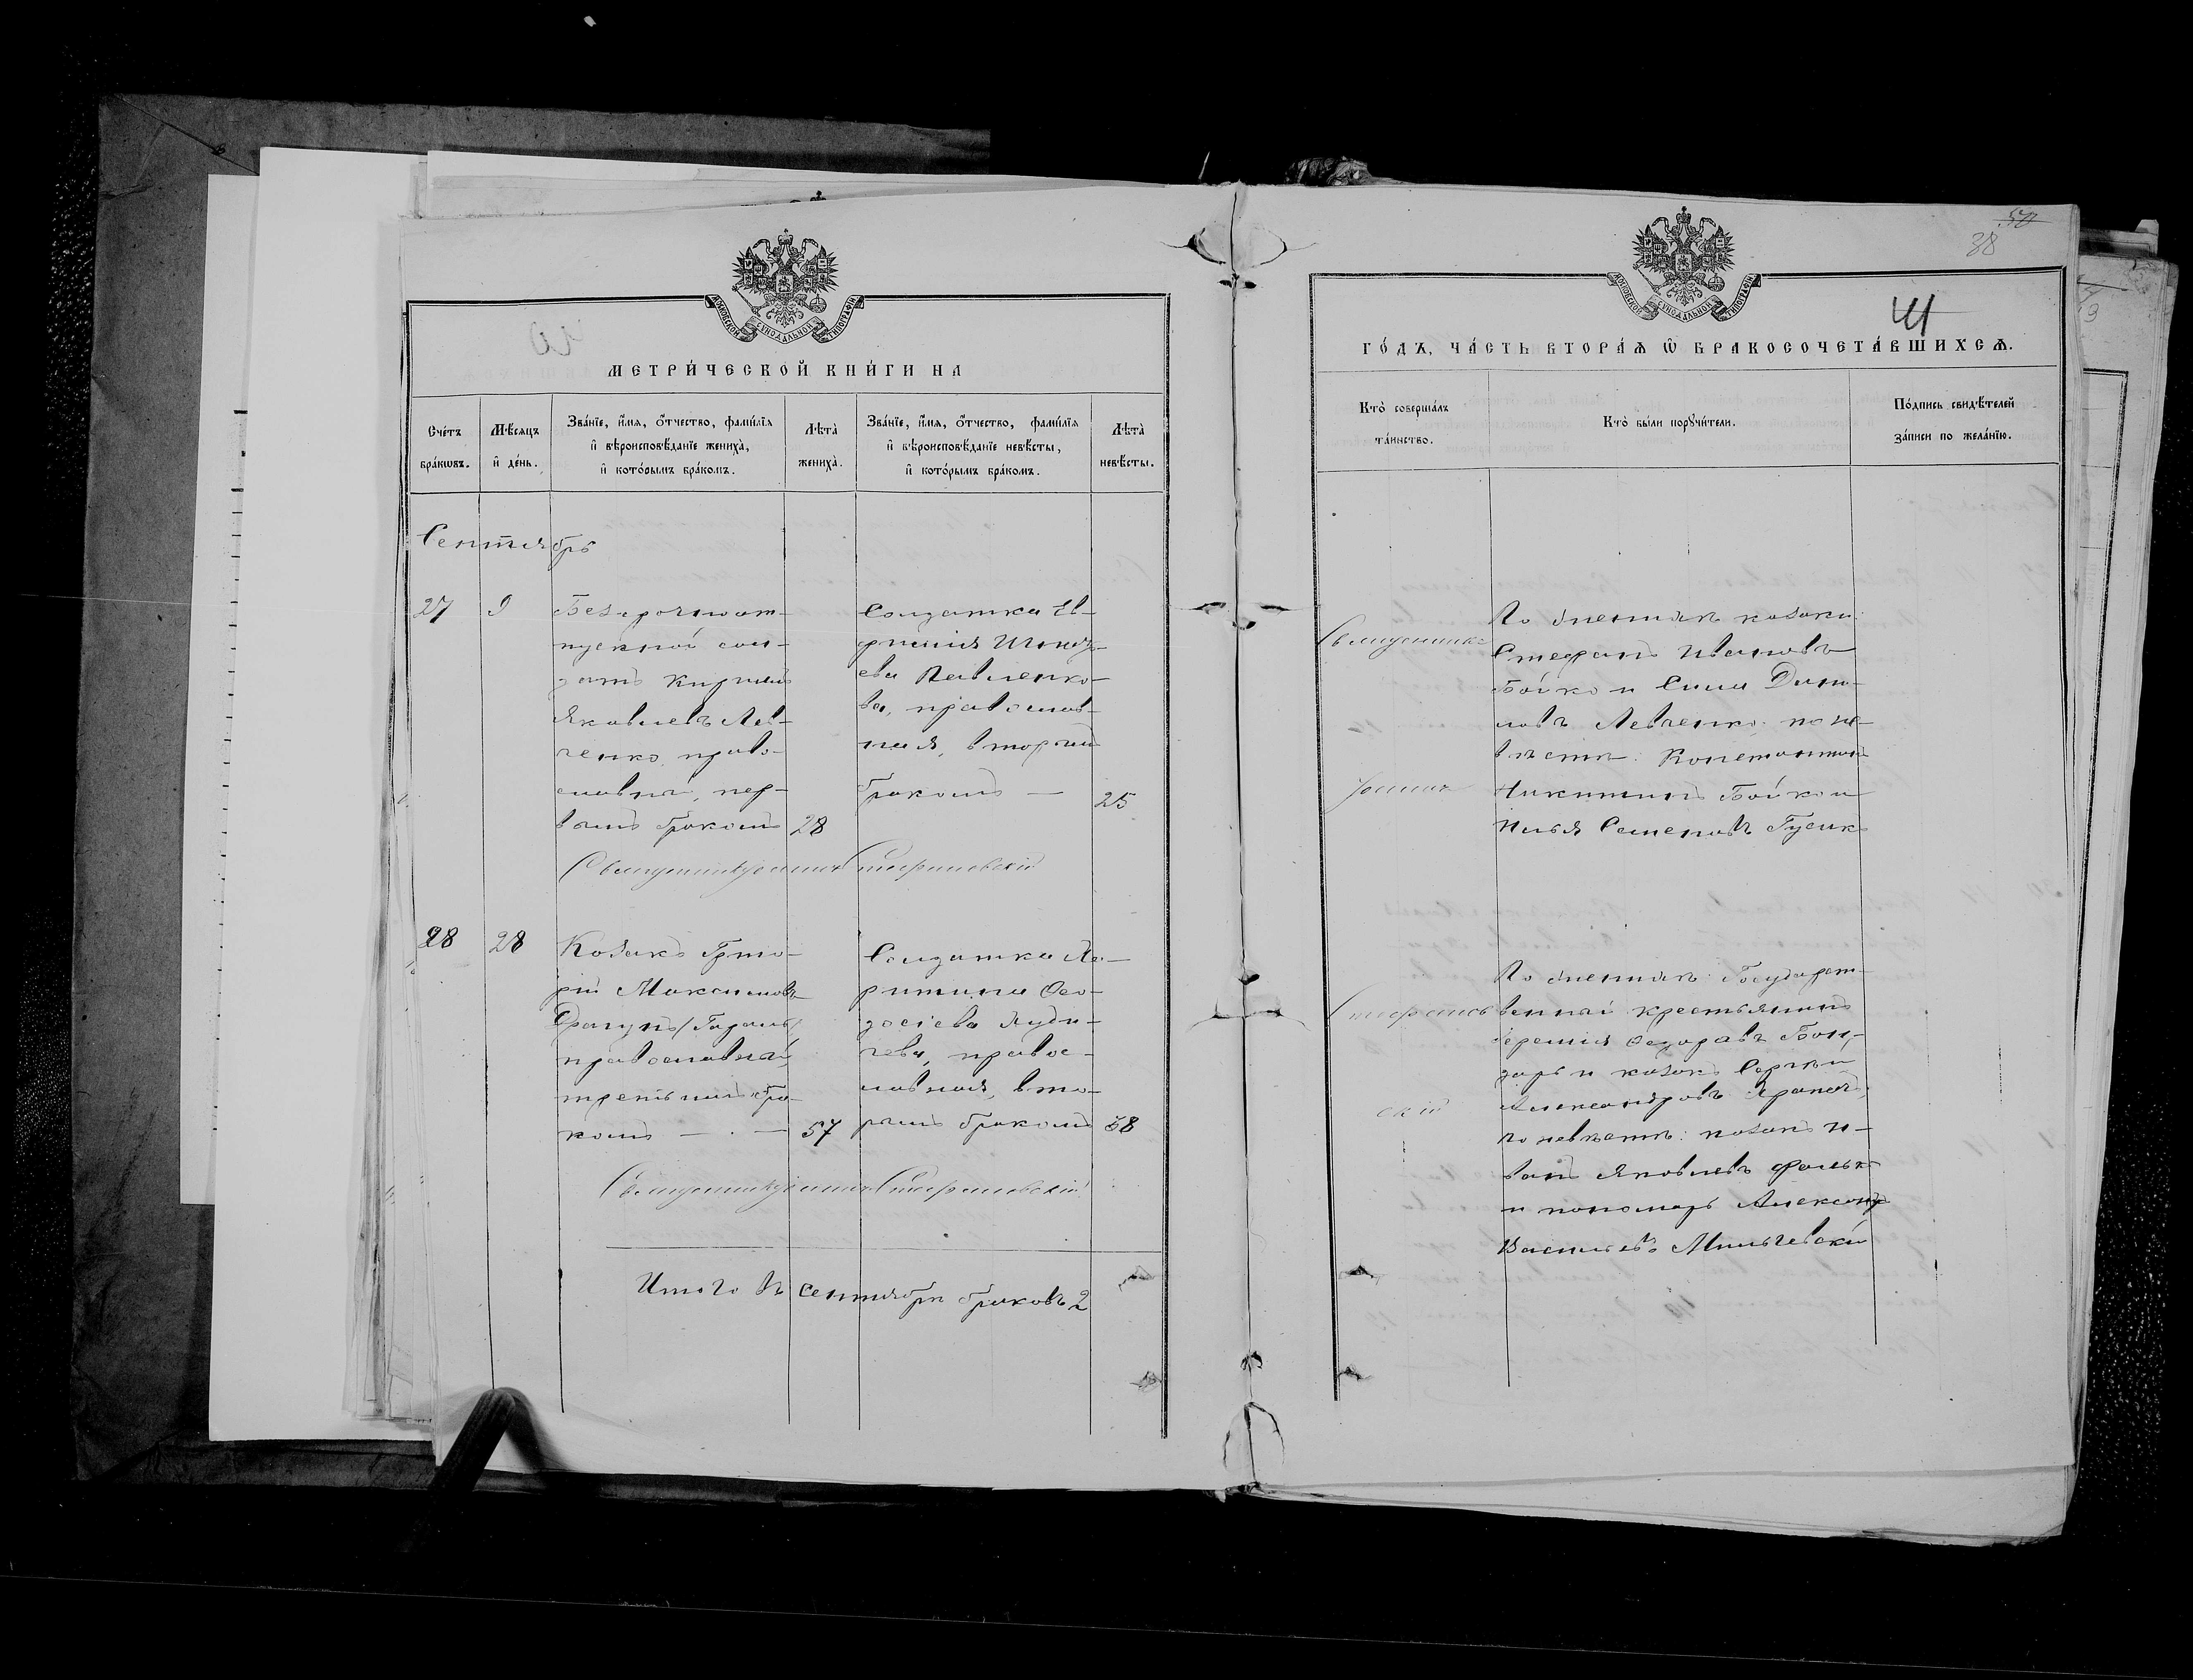 МОСКОВСКОЙ СѴНОДАЛЬНОЙ ТИПОГРАФІИ
МЕТРИ́ЧЕСКОЙ КНИ́ГИ НА
Сче́тъ бра́кωвъ.
Мѣ́сѧцъ и҆ де́нь.
Зва́нїе, и҆́мѧ, ѻ҆́тчество, фами́лїѧ и҆ вѣроисповѣ́данїе жениха̀, и҆ кото́рымъ бра́комъ.
Лѣ́та жениха̀.
Зва́нїе, и҆́мѧ, ѻ҆́тчество, фами́лїѧ и҆ вѣроисповѣ́данїе невѣ́сты, и҆ кото́рымъ бра́комъ.
Лѣ́та невѣ́сты.
Сентябрь
27
9
Безсрочноот-
пускной сол-
датъ Кирилъ
Яковлевъ Лев-
ченко, право-
славный, пер-
вымъ бракомъ
28
Солдатка Ев-
фимія
ева Павленко-
ва, православ-
ная, вторымъ
бракомъ —
25
Священникъ Іоаннъ Стефановскій
28
28
Козакъ Григо-
рій Максимовъ
Драгунъ
православный,
третьимъ бра-
комъ — . —
57
Солдатка Ха-
ритина Ѳео-
досіева
чева, правос-
лавная, вто-
рымъ бракомъ
38
Священникъ Іоаннъ Стефановскій
Итого въ сентябрѣ браковъ 2
50
38
41
МОСКОВСКОЙ СѴНОДАЛЬНОЙ ТИПОГРАФІИ
ГО́ДЪ, ЧА́СТЬ ВТОРА́Ѧ Ѽ БРАКОСОЧЕТА́ВШИХСѦ.
Кто̀ соверша́лъ та́инство.
Кто̀ бы́ли порꙋчи́тели.
По́дпись свидѣ́телей за́писи по жела́нїю.
Священникъ
Іоаннъ
Стефанов
скій
По женихѣ козаки:
Стефанъ Ивановъ
Бойко и Сила Дани-
ловъ Левченко, по не-
вѣстѣ: Константинъ
Никитинъ Бойко и
Илья Семеновъ Гусакъ
По женихѣ: Государст-
венный крестьянинъ
Іеремія Ѳедоровъ Бон-
дарь и козакъ Сергѣй
Александровъ
по невѣстѣ: козакъ И-
ванъ Яковлевъ
и пономарь Александръ
Васильевъ Мильчевскій